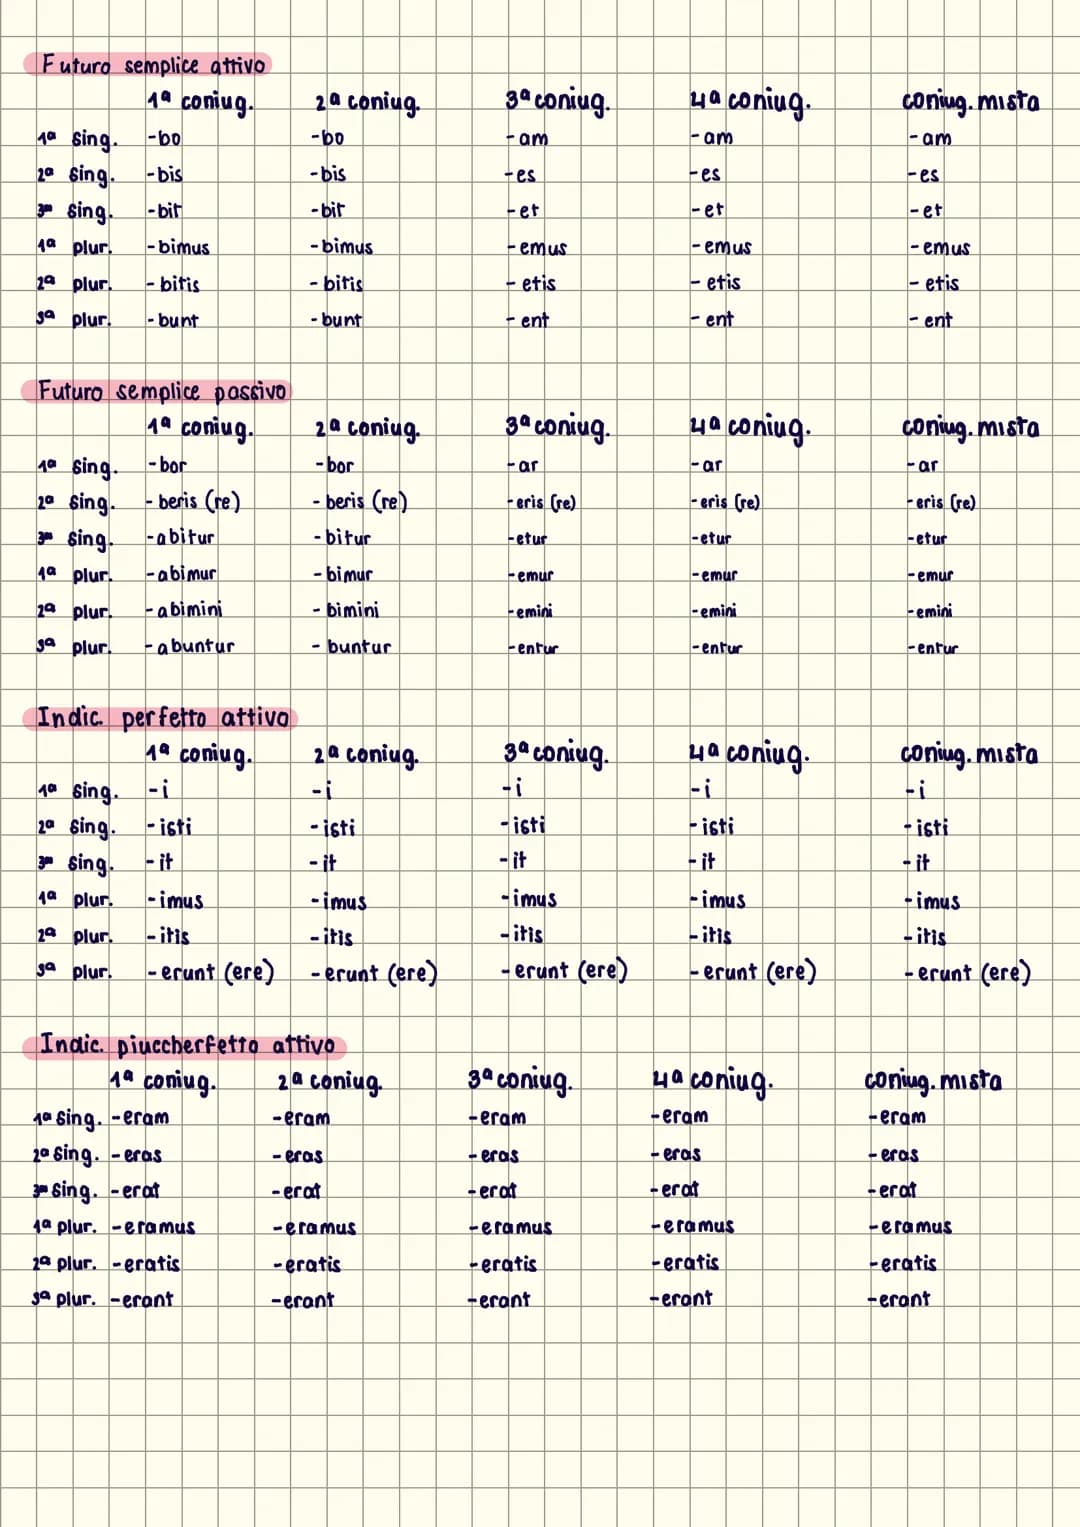 Futuro semplice attivo
1ª coniug. 2ª coniug. 3ª coniug. 4ª coniug. coniug. mista
1ª sing. -bo -bo -am -am -am
2ª sing. -bis -bis -es -es -es
3ª sing. -bit -bit -et -et -et
1ª plur. -bimus -bimus -emus -emus -emus
2ª plur. -bitis -bitis -etis -etis -etis
3ª plur. -bunt -bunt -ent -ent -ent
Futuro semplice passivo
1ª coniug. 2ª coniug. 3ª coniug. 4ª coniug. coniug. mista
1ª sing. -bor -bor -ar -ar -ar
2ª sing. -beris (re) -beris (re) -eris (re) -eris (re) -eris (re)
3ª sing. -abitur -bitur -etur -etur -etur
1ª plur. -abimur -bimur -emur -emur -emur
2ª plur. -abimini -bimini -emini -emini -emini
3ª plur. -abuntur -buntur -entur -entur -entur
Indic. perfetto attivo
1ª coniug. 2ª coniug. 3ª coniug. 4ª coniug. coniug. mista
1ª sing. -i -i -i -i -i
2ª sing. -isti -isti -isti -isti -isti
3ª sing. -it -it -it -it -it
1ª plur. -imus -imus -imus -imus -imus
2ª plur. -itis -itis -itis -itis -itis
3ª plur. -erunt (ere) -erunt (ere) -erunt (ere) -erunt (ere) -erunt (ere)
Indic. piuccherfetto attivo
1ª coniug. 2ª coniug. 3ª coniug. 4ª coniug. coniug. mista
1ª sing. -eram -eram -eram -eram -eram
2ª sing. -eras -eras -eras -eras -eras
3ª sing. -erat -erat -erat -erat -erat
1ª plur. -eramus -eramus -eramus -eramus -eramus
2ª plur. -eratis -eratis -eratis -eratis -eratis
3ª plur. -erant -erant -erant -erant -erant